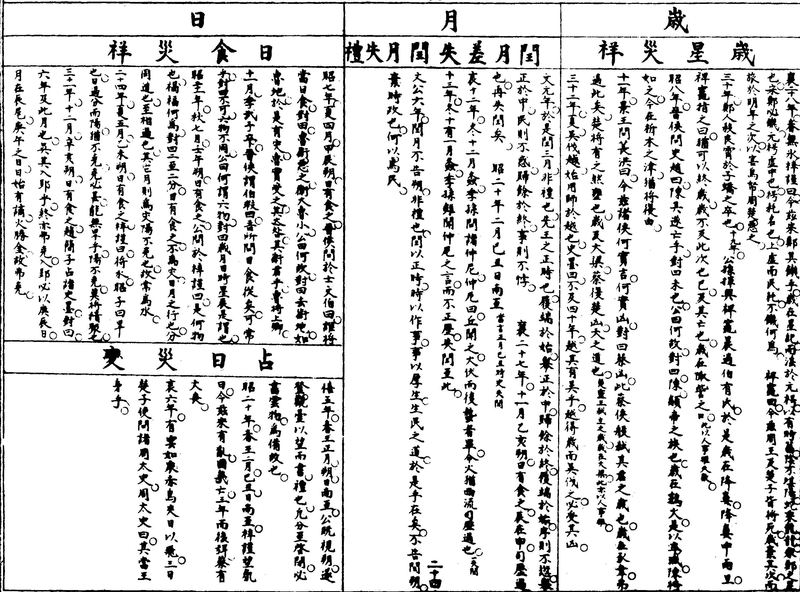 歲
歲星災祥
襄二十八年春無氷梓慎曰今茲宋鄭其饑乎歲在星紀而淫於玄枵以有時菑陰不堪陽蛇乘龍龍宋鄭之星
也宋鄭必饑玄枵虛中也枵耗名也土虛而民耗不饑何爲 裨竈曰今茲周王及楚子皆將死歲棄其次而
旅於明年之次以害鳥帑周楚惡之
三十年鄭人殺良霄於子蟜之卒也 公孫揮與裨竈晨過伯有氏於是歲在降婁降婁中而旦
裨竈指之曰猶可以終歲歲不及此次也已及其亡也歲在娵訾之口
昭八年晉侯問史趙曰陳其遂亡乎對曰未也公曰何故對曰陳顓帝之族也歲在鶉火是以卒滅陳將
如之今在析木之津猶將復由
十一年景王問萇洪曰今茲諸侯何實吉何實凶對曰蔡凶此蔡侯般弑其君之歲也歲在豕韋弗
過此矣楚將有之然壅也歲及大梁蔡復楚凶天之道也
三十二年夏吳伐越始用師於越也史墨曰不及四十年越其有吳乎越得歲而吳伐之必受其凶
月
閏月差失
文元年於是閏三月非禮也先王之正時也履端於始舉正於中歸餘於終履端於始序則不愆舉
正於中民則不惑歸餘於終事則不悖 襄二十七年十一月乙亥朔日有食之辰在申司歷過
也再失閏矣 昭二十年二月己丑日南至
哀十二年冬十二月螽季孫問諸仲尼仲尼曰丘聞之火伏而後蟄者畢今火猶西流司歷過也
十三年冬十有二月螽季孫雖聞仲尼之言而不正歷失閏至此
閏月失禮
文公六年閏月不告朔非禮也閏以正時時以作事事以厚生生民之道於是乎在矣不告閏朔
棄時政也何以爲民
二十四
日
日食災祥
昭七年夏四月甲辰朔日有食之晉侯問於士文伯曰誰將
當日食對曰魯衛惡之衛大魯小公曰何故對曰去衛地如
魯地於是有災魯實受之其大咎其衛君乎魯將上卿
十一月季武子卒晉侯謂伯瑕曰吾所問日食從矣可常
乎對曰不可六物不同公曰何謂六物對曰歲月日時星辰是謂也
昭二十一年秋七月壬午朔日有食之公問於梓慎曰是何物
也禍福何爲對曰二至二分日有食之不爲災日月之行也分
同道也至相過也其它月則爲災陽不克也故常爲水
二十四年夏五月乙未朔日有食之梓慎曰將水昭子曰旱
也日過分而陽猶不克克必甚能無旱乎陽不克莫將積聚也
三十一年十二月辛亥朔日有食之趙簡子占諸史墨對曰
六年及此月也吳其入郢乎終亦弗克入郢必以庚辰日
月在辰尾庚午之日日始有謫火勝金故弗克
占日災變
僖五年春王正月朔日南至公旣視朔遂
登觀臺以望而書禮也凡分至啓閉必
書雲物爲備故也
昭二十年春王二月己丑日南至梓慎望氣
曰今茲宋有亂國幾亡三年而後弭蔡有
大喪
哀六年有雲如衆赤烏夾日以飛三日
楚子使問諸周太史周太史曰其當王
身乎